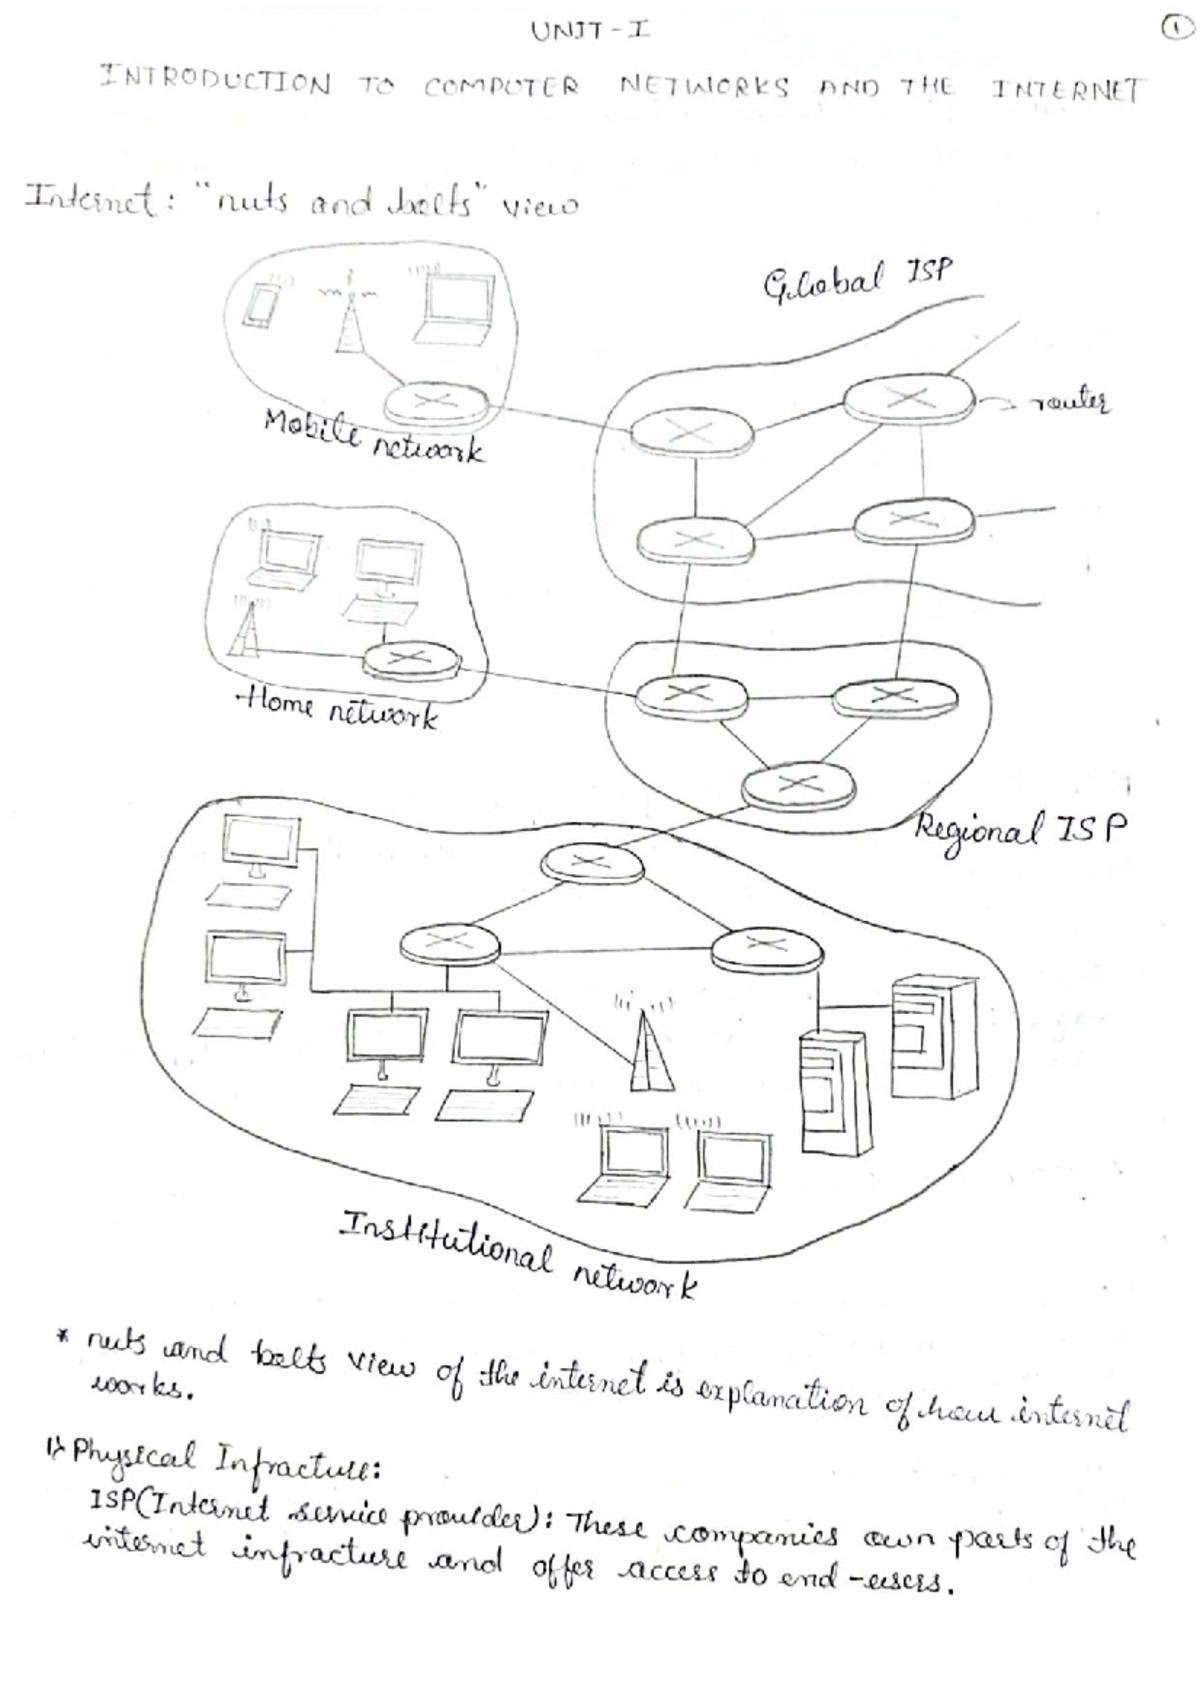 UNIT-I
1
INTRODUCTION TO COMPUTER NETWORKS AND THE INTERNET
Internet: "nuts and bolts" view
Global ISP
router
Mobile network
Home network
Regional ISP
Institutional network
* nuts and bolts view of the internet is explanation of how internet
works.
1) Physical Infracture:
ISP(Internet service provider): These companies own parts of the
internet infracture and offer access to end-users.